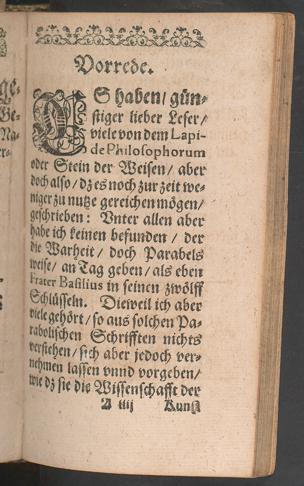 Vorrede.
ES haben / gün-
stiger lieber Leser /
viele von dem Lapi-
de Philosophorum
oder Stein der Weisen / aber
doch also / dz es noch zur zeit we-
niger zu nutze gereichen mögen /
geschrieben: Vnter allen aber
habe ich keinen befunden / der
die Warheit / doch Parabels
weise / an Tag geben / als eben
Frater Basilius in seinen zwölff
Schlüsseln. Dieweil ich aber
viele gehört / so aus solchen Pa-
rabolischen Schrifften nichts
verstehen / sich aber jedoch ver-
nehmen lassen vnnd vorgeben /
wie dz sie die Wissenschafft der
A iiij Kunst